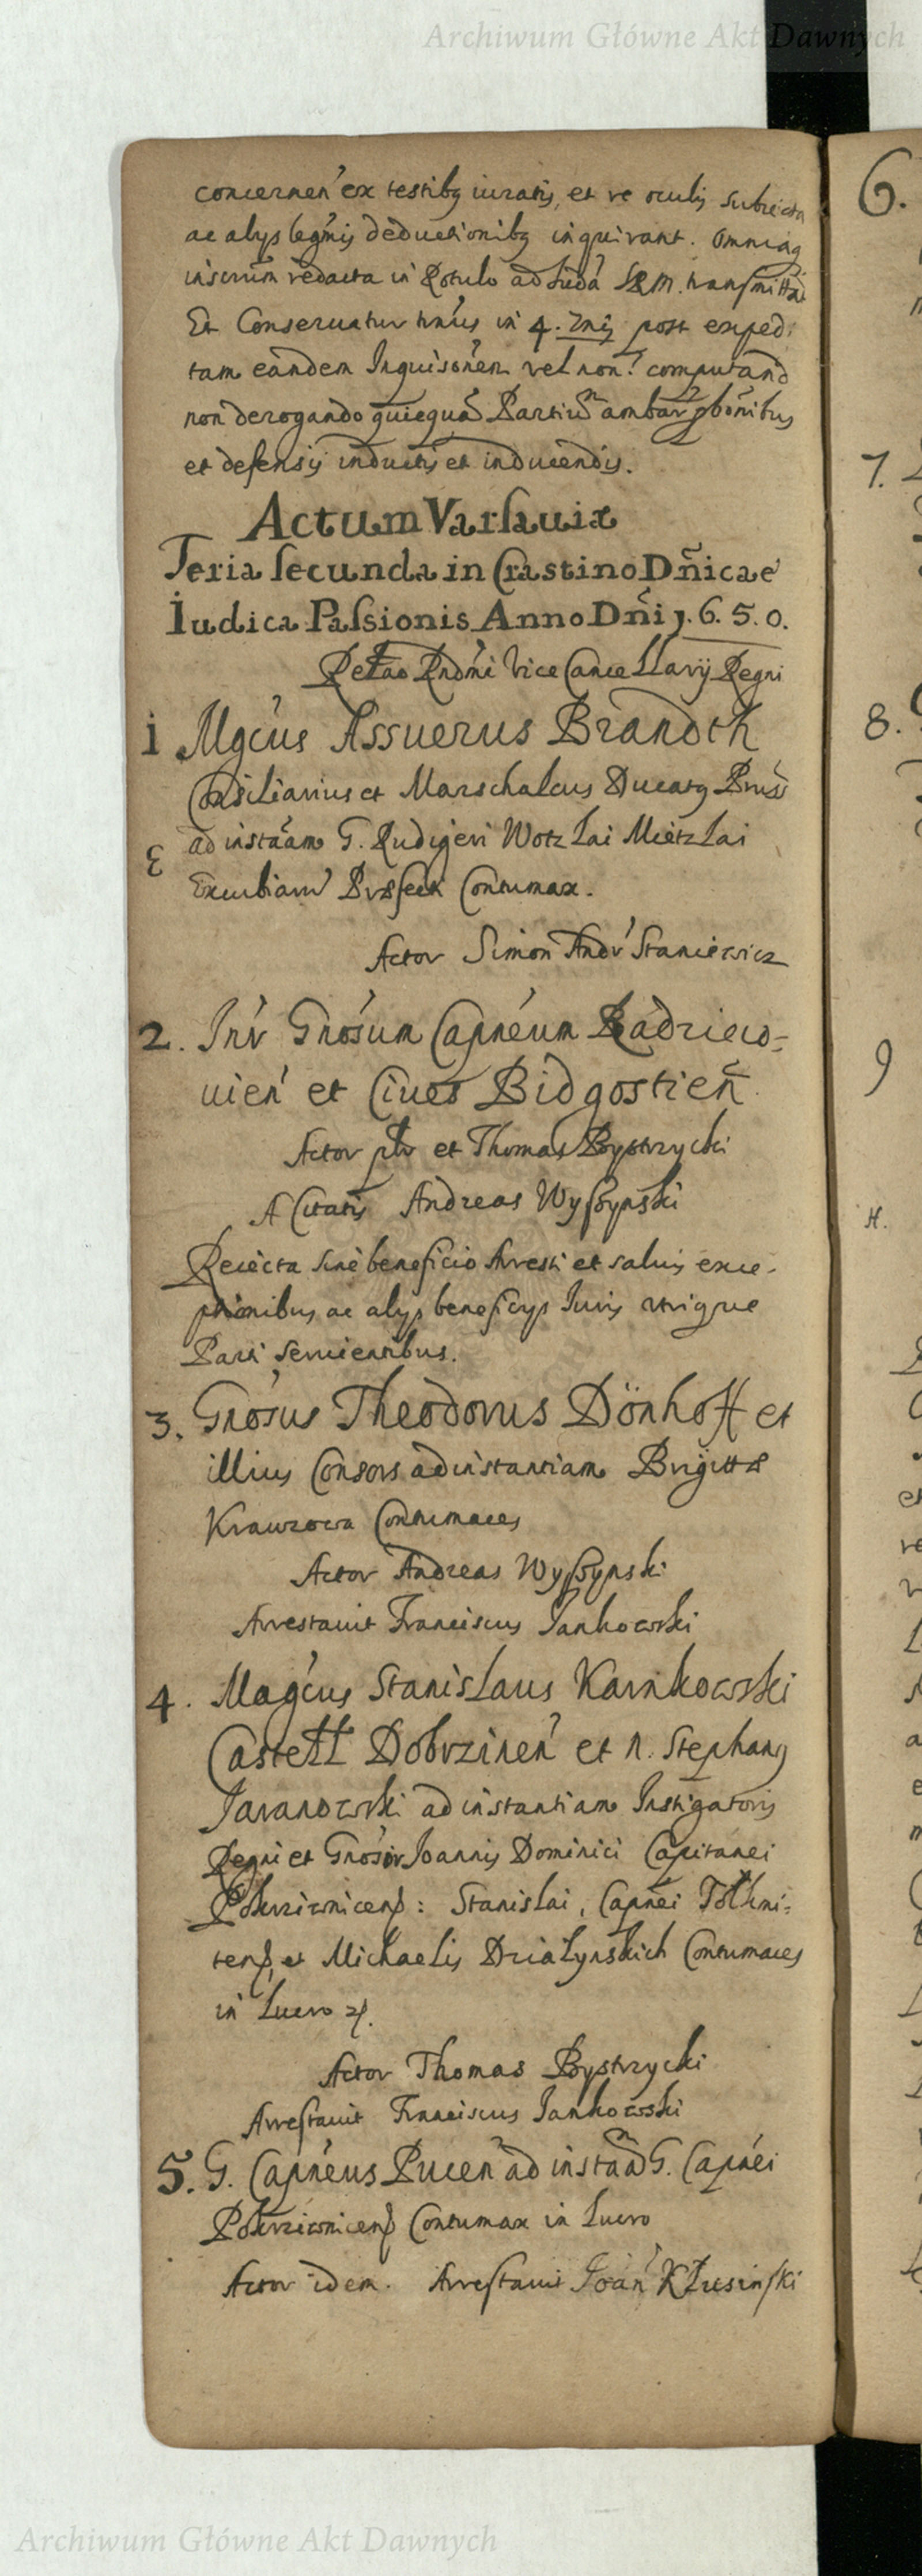 Archiwum Główne Akt Dawnych
concernen' ex testibq iuratis, et re oculis subiecta
ac alys legmis deductionibq inquirant. Omniaq
redacta in Rotulo ad S.R.M. transmittat
Et Conseruatur in 4. post expedi
tam eandem Inquisonem vel non: computand
non derogando quicquā Partiū ambar
et defensis inductis et inducendis.
Actum Varsauiæ
Feria secunda in Crastino Dñicae
Iudica Passionis Anno Dñi 1.6.5.0.
Rndmi Vice Cancellarij Regni
1 Mgcus Assuerus Brandth
Consiliarius et Marschalcus Ducatq Pruss
ad instāam G. Rudigeri Wotzlai Mietzlai
Excubiarū Præfect Contumax.
Actor Simon Andr' Staniewicz
2. Inr Gnosum Capneum Radzieio-
uien' et Ciues Bidgostien
Actor et Thomas Bystrzycki
A Citatis Andreas Wyssynski
Reiecta sine beneficio Arresti et saluis exce-
ptionibus ac alys beneficys Iuris utrique
Parti seruientibus.
3. Gnosus Theodorus Dönhoff et
illius Consors ad instantiam Brigittæ
Krauzowa Contumaces
Actor Andreas Wyssynski
Arrestauit Franciscus Iankowski
4. Magcus Stanislaus Karnkowski
Castell Dobrzinen' et N. Stephanq
Iaranowski ad instantiam Instigatoris
Regni et Gnosor Ioannis Dominici Capitanei
Pokrziwnicens: Stanislai, Capnei Tolkmi-
tens, et Michaelis Dzialynskich Contumaces
in Lucro
Actor Thomas Bystrzycki
Arrestauit Franciscus Iankowski
5. G. Capneus Pucen ad instām G. Capnei
Pokrziwnicens Contumax in Lucro
Actor idem. Arrestauit Ioan' Klusinski
6.
7.
8.
9
Archiwum Główne Akt Dawnych